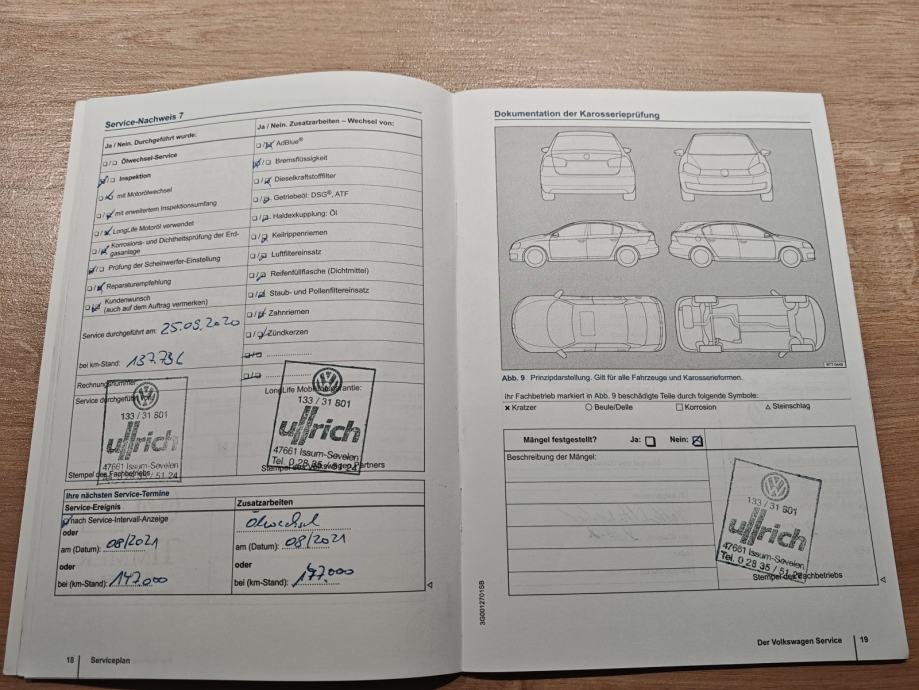 Service-Nachweis 7
Ja / Nein. Durchgeführt wurde:
Ölwechsel-Service
Inspektion
mit Motorölwechsel
mit erweitertem Inspektionsumfang
LongLife Motoröl verwendet
Korrosions- und Dichtheitsprüfung der Erd-
gasanlage
Prüfung der Scheinwerfer-Einstellung
Reparaturempfehlung
Kundenwunsch
(auch auf dem Auftrag vermerken)
Service durchgeführt am: 25.09.2020
bei km-Stand:
Rechnungsnummer:
Service durchgeführt von:
133 / 31 801
ullrich
47661 Issum-Sevelen
Tel. 0 28 35 / 51 24
Stempel des Fachbetriebs
Ja / Nein. Zusatzarbeiten – Wechsel von:
AdBlue®
Bremsflüssigkeit
Dieselkraftstofffilter
Getriebeöl: DSG®, ATF
Haldexkupplung: Öl
Keilrippenriemen
Luftfiltereinsatz
Reifenfüllflasche (Dichtmittel)
Staub- und Pollenfiltereinsatz
Zahnriemen
Zündkerzen
LongLife Mobilitätsgarantie:
133 / 31 801
ullrich
47661 Issum-Sevelen
Tel. 0 28 35 / 51 24
Stempel des Volkswagen Partners
Ihre nächsten Service-Termine
Service-Ereignis
nach Service-Intervall-Anzeige
oder
am (Datum): 08/2021
oder
bei (km-Stand): 147.000
Zusatzarbeiten
Ölwechsel
am (Datum): 08/2021
oder
bei (km-Stand): 177.000
18 Serviceplan
Dokumentation der Karosserieprüfung
Abb. 9 Prinzipdarstellung. Gilt für alle Fahrzeuge und Karosserieformen.
Ihr Fachbetrieb markiert in Abb. 9 beschädigte Teile durch folgende Symbole:
Kratzer
Beule/Delle
Korrosion
Steinschlag
Mängel festgestellt? Ja: Nein:
Beschreibung der Mängel:
133 / 31 801
ullrich
47661 Issum-Sevelen
Tel. 0 28 35 / 51 24
Stempel des Fachbetriebs
3G0012701SB
Der Volkswagen Service 19